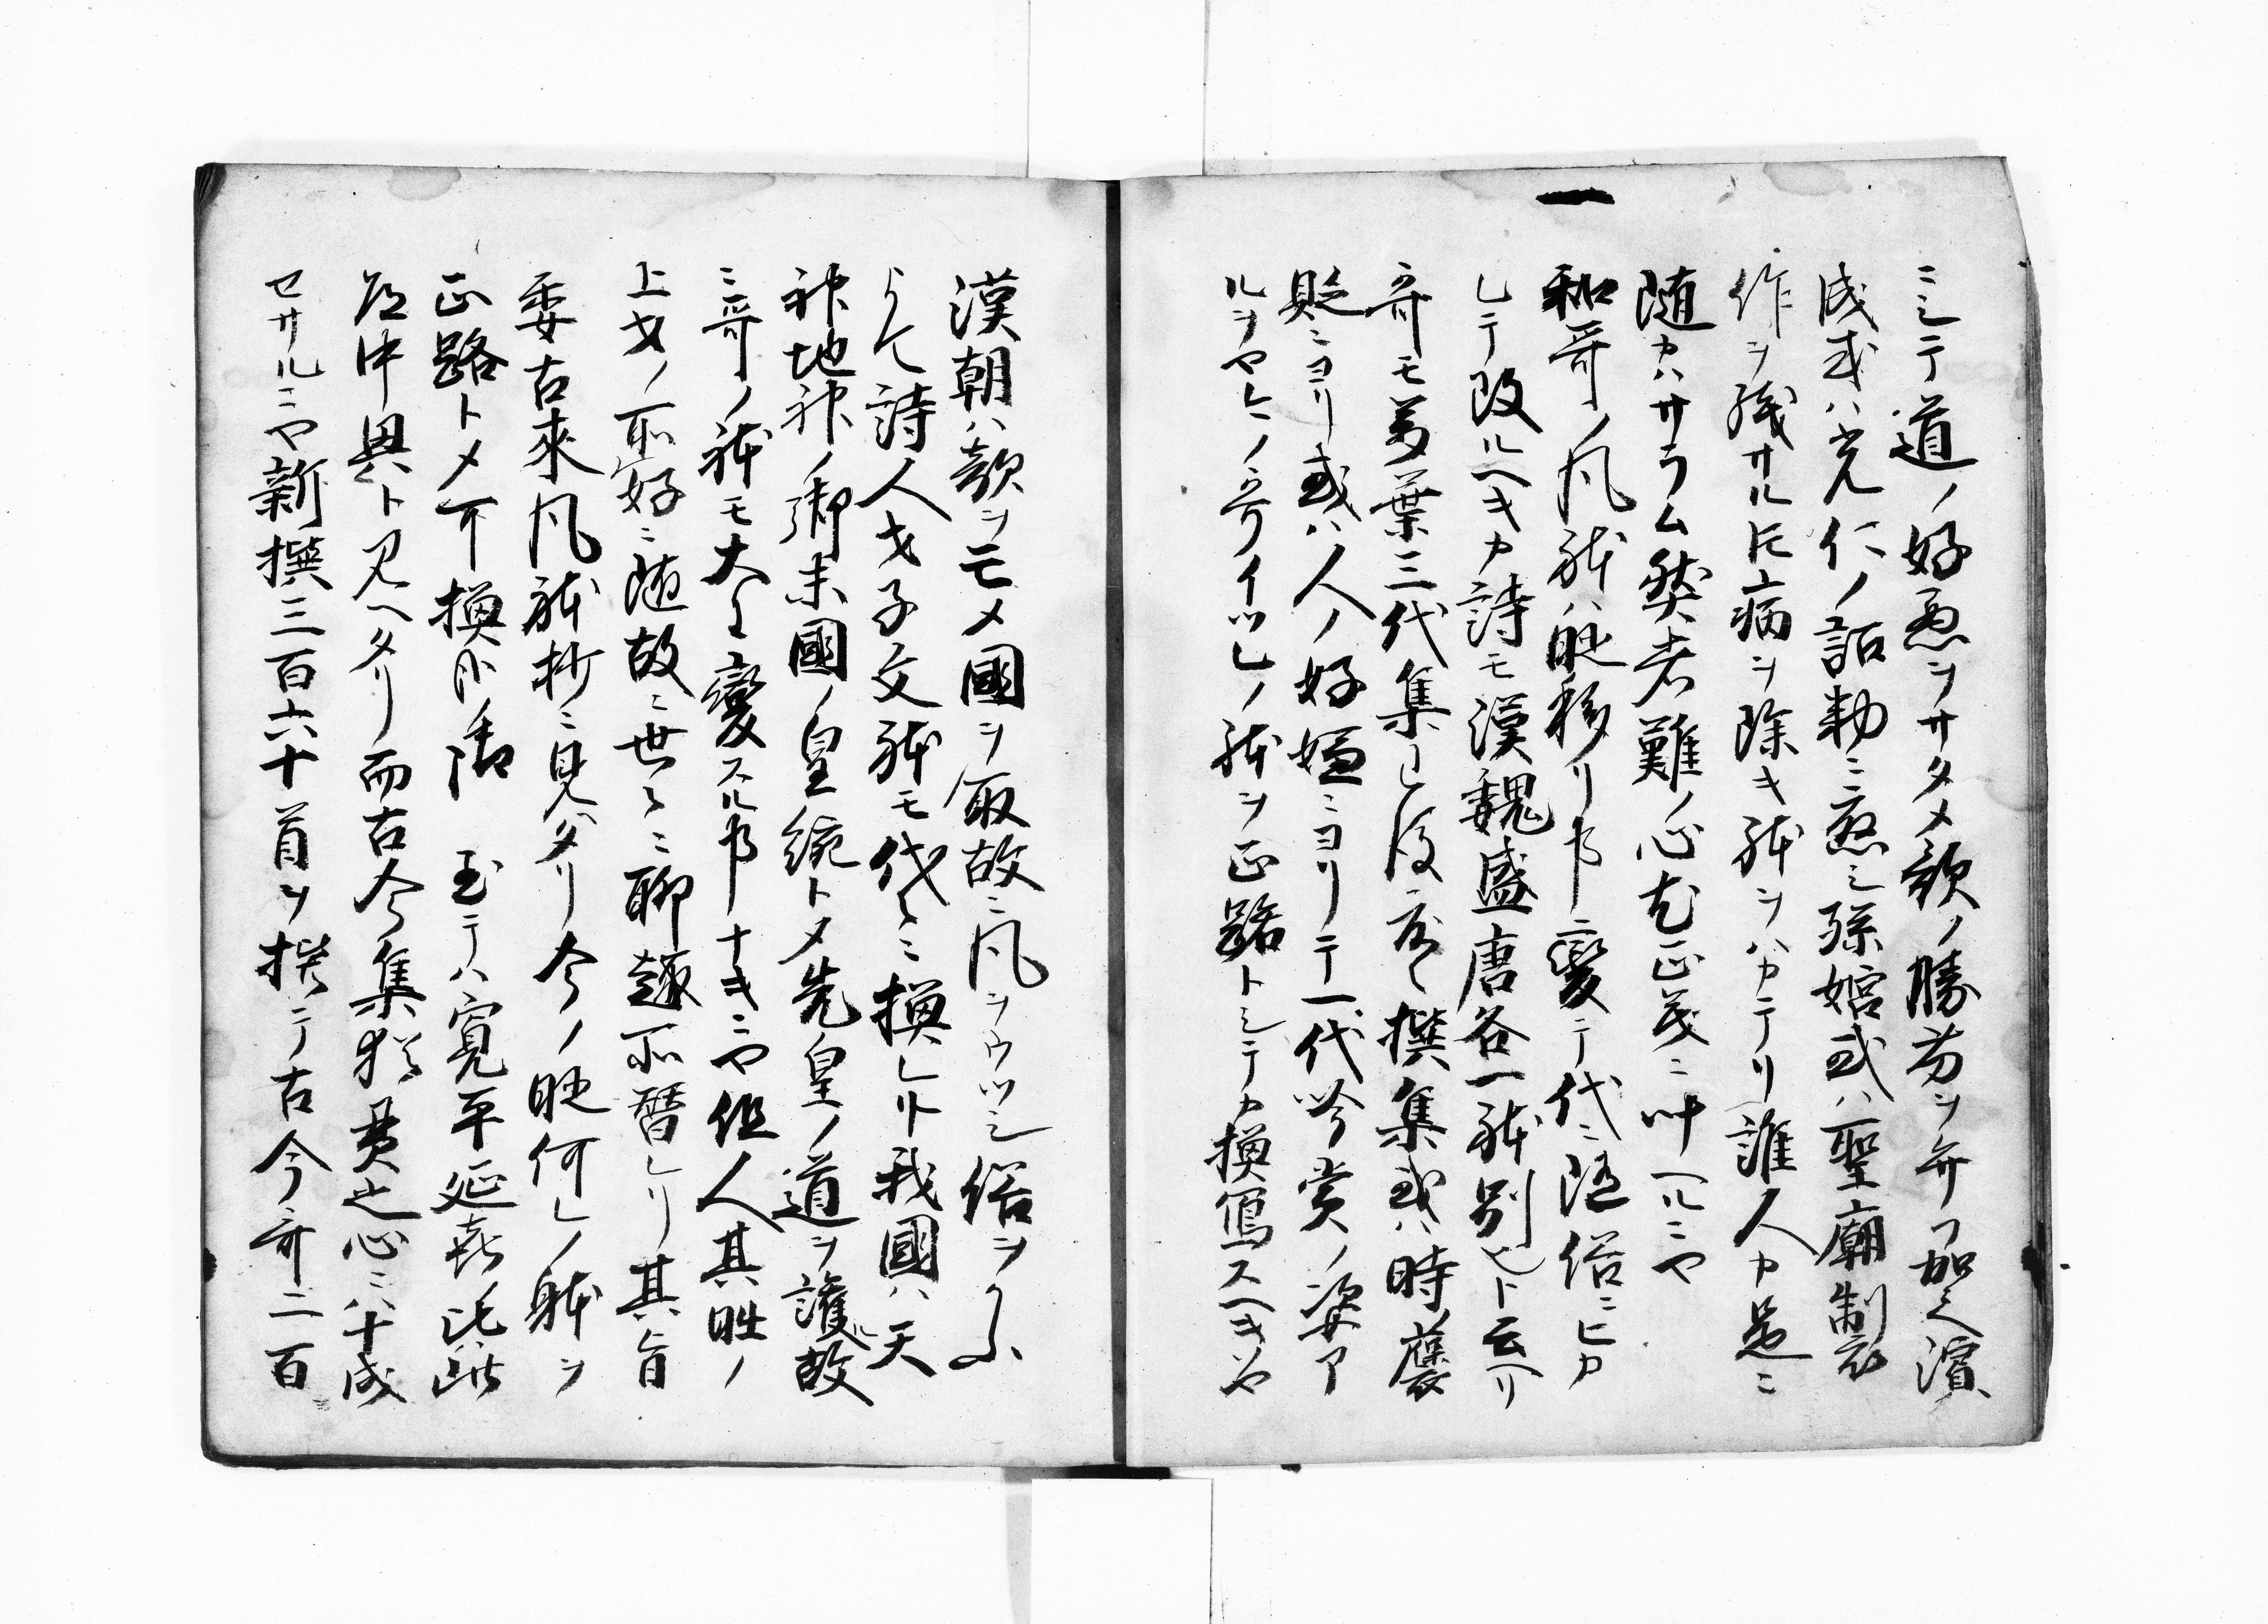 ニシテ道ノ好悪ヲサタメ歌ノ勝劣ヲ弁フ加之濱
成或ハ光仁ノ詔勅ニ応シ孫姫或ハ聖廟制衣
作ヲ残サル尼病ヲ除キ躰ヲハカテリ誰人カ是ニ
随カハサラム然者難ノ心尤正義ニ叶ヘルニヤ
一 和哥ノ風躰ハ時移リ事変テ代ニ随俗ニヒカ
レテ改ルヘキカ詩モ漢魏盛唐各一躰別也ト云ヘリ
哥モ万葉三代集已後度々撰集或ハ時ノ褒
貶ニヨリ或ハ人ノ好嫌ニヨリテ一代吟賞ノ姿ア
ルヲヤヒノ哥イツレノ躰ヲ正路トシテカ換冩スヘキヤ
漢朝ハ歌ヲモメ國ヲ取故ニ風ヲウツシ俗ヲカふ
よて詩人才子文躰モ代々ニ換レリ我國ハ天
神地神ノ御末國ノ皇統トメ先皇ノ道ヲ護ル故
ニ哥ノ躰モ大ニ変スル事ナキニヤ但人其時ノ
上才ノ所好ニ随故ニ世々ニ聊趣所替レリ其旨
委古來風躰抄ニ見ヘタリ今ノ時何レノ躰ヲ
正路トメ可換ル 至テハ寛平延喜ノ比此
道中興ト見ヘタリ而古今集撰 之心ニハ十成
セサルニヤ新撰三百六十首ヲ撰テ古今哥二百